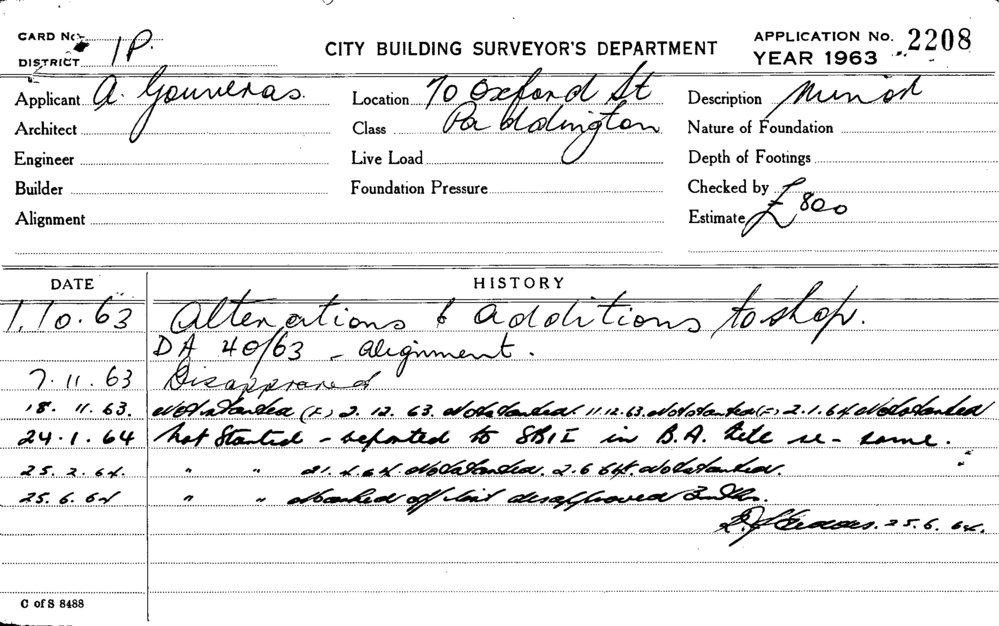 CARD No.
DISTRICT 1P.
CITY BUILDING SURVEYOR'S DEPARTMENT
APPLICATION No. 2208
YEAR 1963
Applicant A. Gouveras.
Location 70 Oxford St
Description Minor
Architect
Class Paddington
Nature of Foundation
Engineer
Live Load
Depth of Footings
Builder
Foundation Pressure
Checked by
Alignment
Estimate £800
DATE HISTORY
1.10.63 Alterations & additions to shop.
DA 40/63 - alignment.
7.11.63 Disapproved
18.11.63. Not started (F) 2.12.63. Not started. 11.12.63. Not started (F) 2.1.64 Not started
24.1.64 Not Started - reported to SBI in B.A. file re- same.
25.2.64. " " 21.4.64. Not started. 2.6.64. Not started.
25.6.64 " " Marked off list disapproved
25.6.64.
C of S 8488